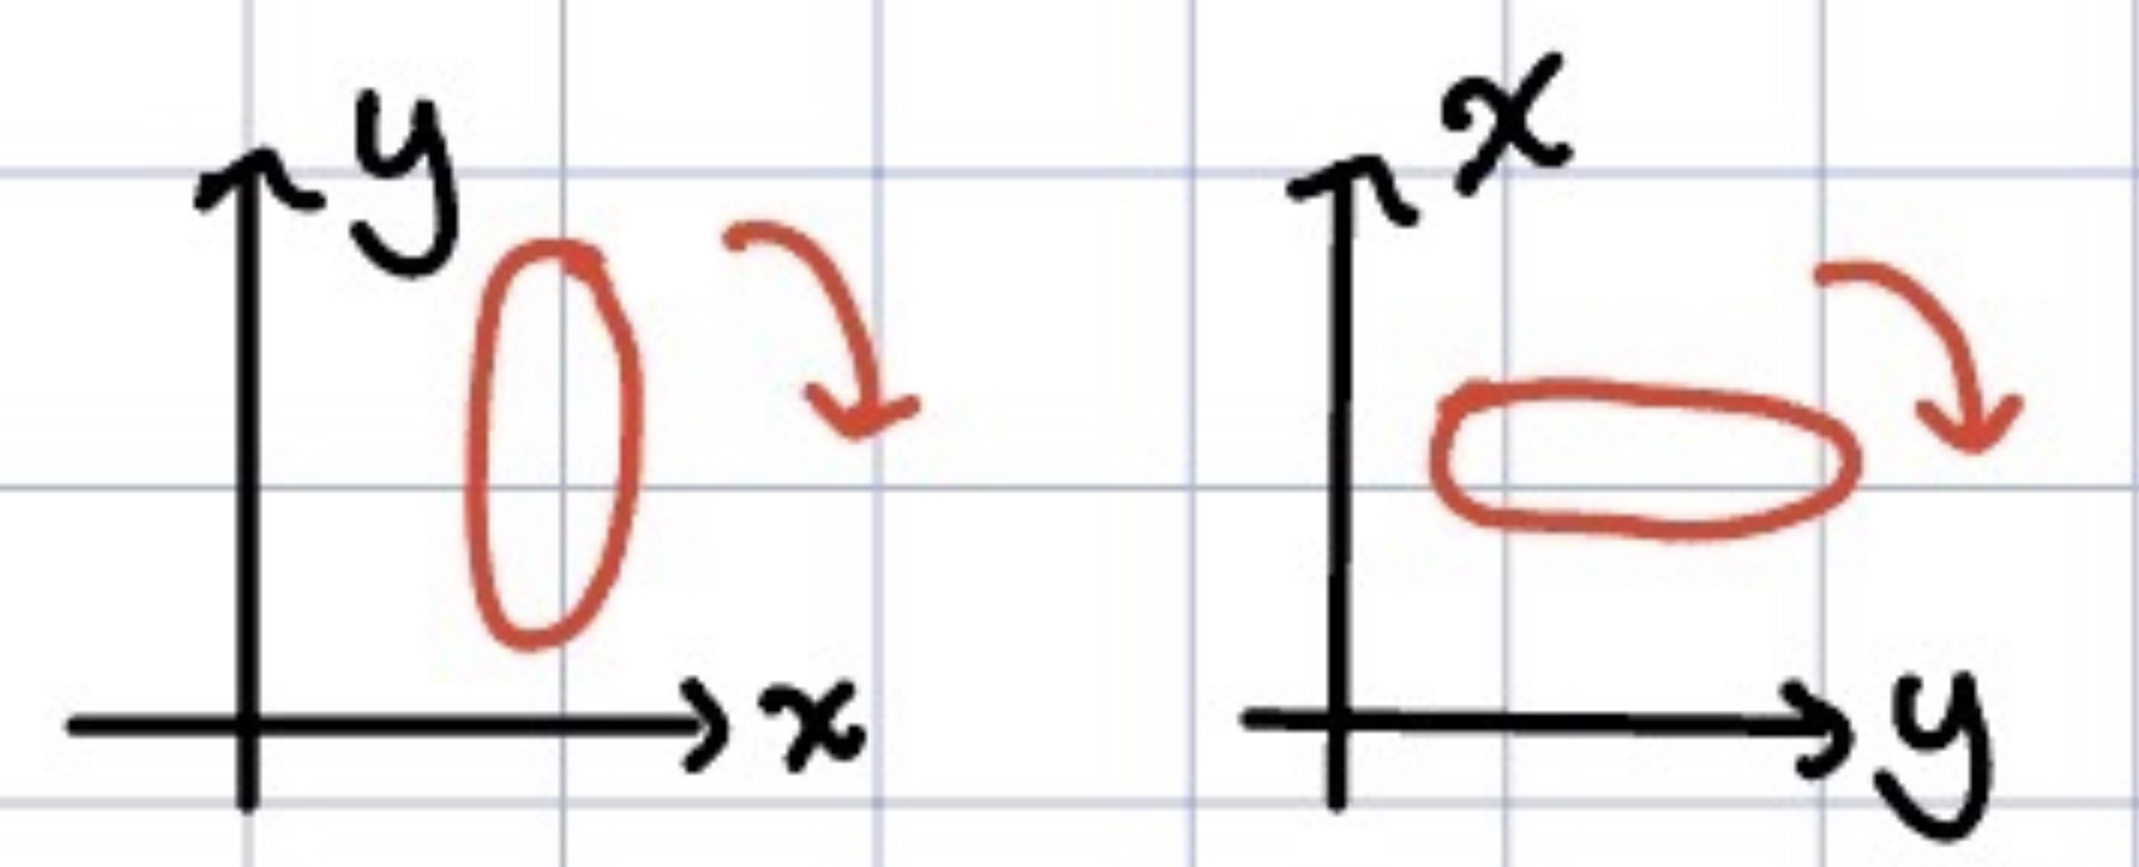 y
x
x
y